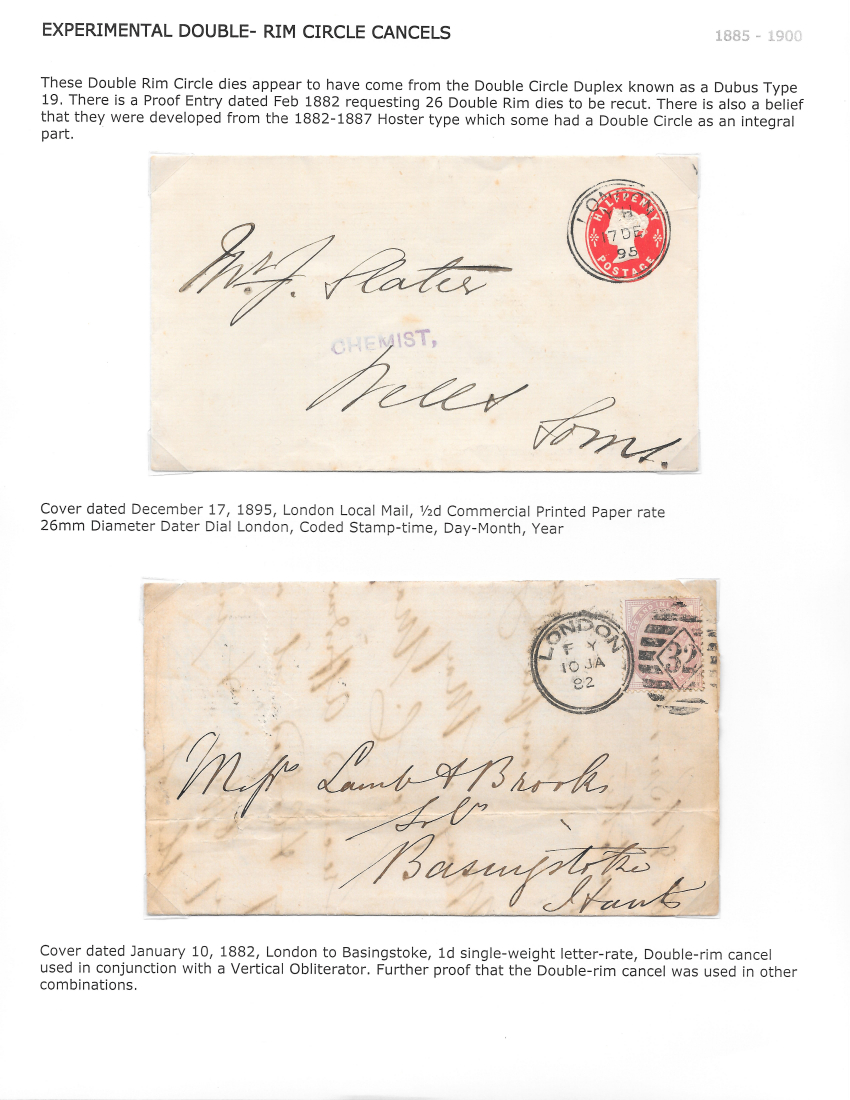 EXPERIMENTAL DOUBLE- RIM CIRCLE CANCELS
1885 - 1900
These Double Rim Circle dies appear to have come from the Double Circle Duplex known as a Dubus Type
19. There is a Proof Entry dated Feb 1882 requesting 26 Double Rim dies to be recut. There is also a belief
that they were developed from the 1882-1887 Hoster type which some had a Double Circle as an integral
part.
LONDON
HALFPENNY
17 DE
95
POSTAGE
Mr. J. Slater
CHEMIST,
Wells
Soms.
Cover dated December 17, 1895, London Local Mail, ½d Commercial Printed Paper rate
26mm Diameter Dater Dial London, Coded Stamp-time, Day-Month, Year
LONDON
F Y
10 JA
82
32
Messrs Lamb & Brooks
Solrs
Basingstoke
Hants
Cover dated January 10, 1882, London to Basingstoke, 1d single-weight letter-rate, Double-rim cancel
used in conjunction with a Vertical Obliterator. Further proof that the Double-rim cancel was used in other
combinations.